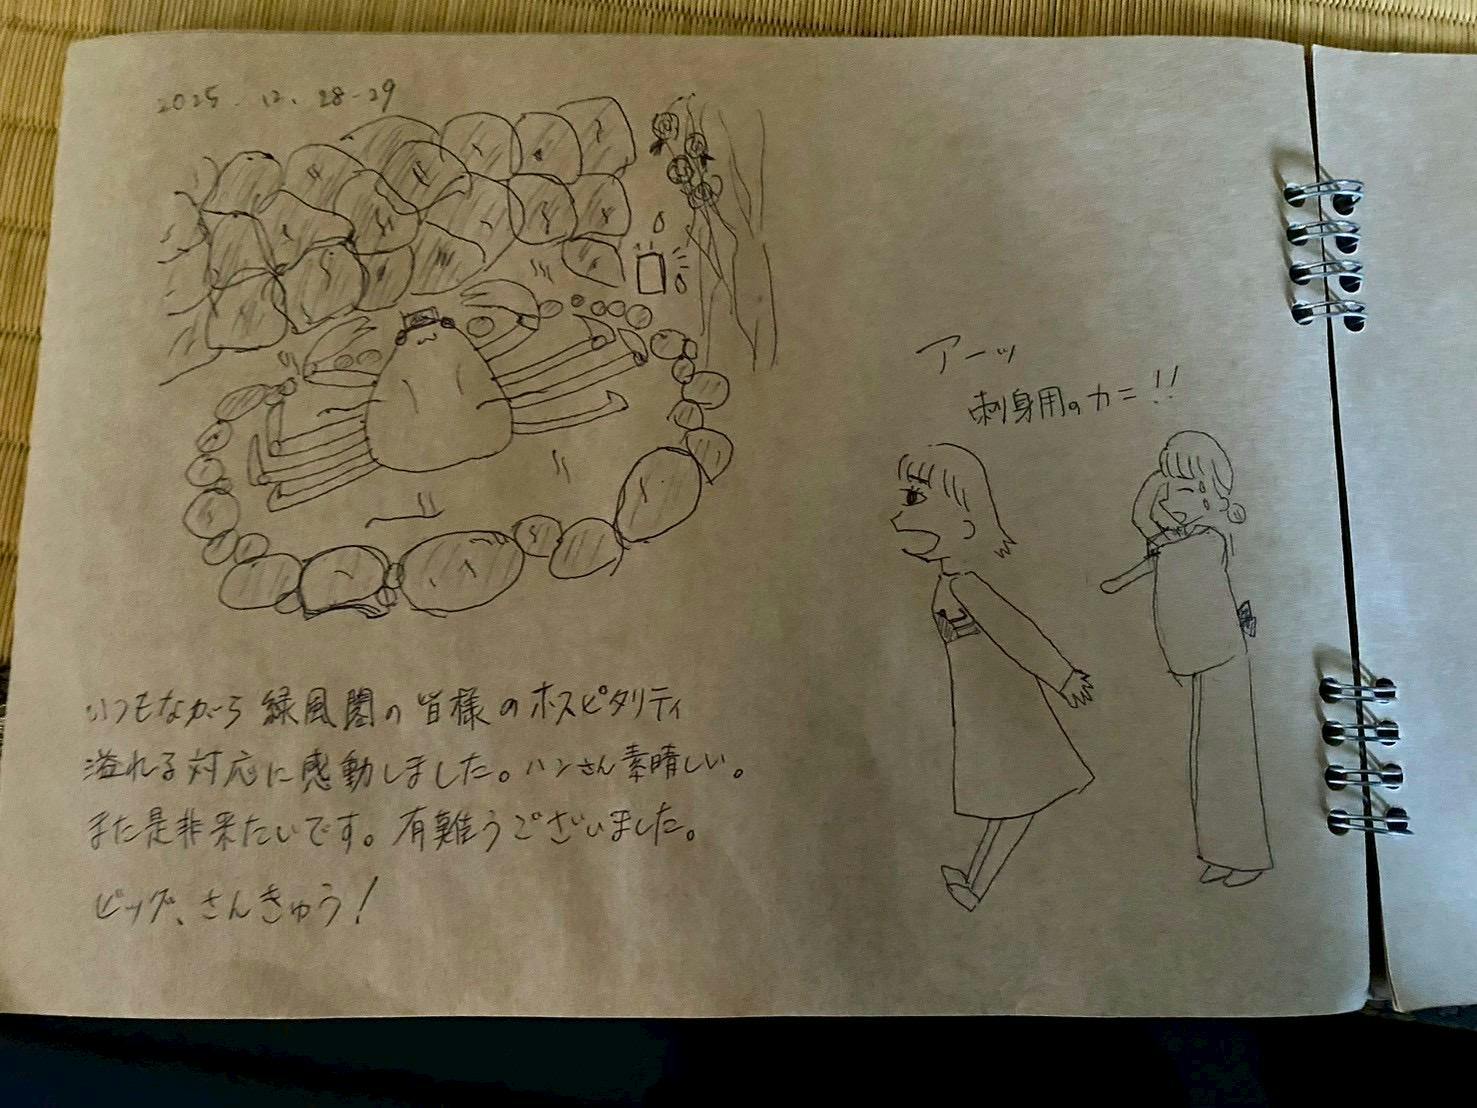 2025.12.28-29
アーッ
刺身用のカニ!!
いつもながら緑風閣の皆様のホスピタリティ
溢れる対応に感動しました。ハンさん素晴しい。
また是非来たいです。有難うございました。
ビッグ、さんきゅう!